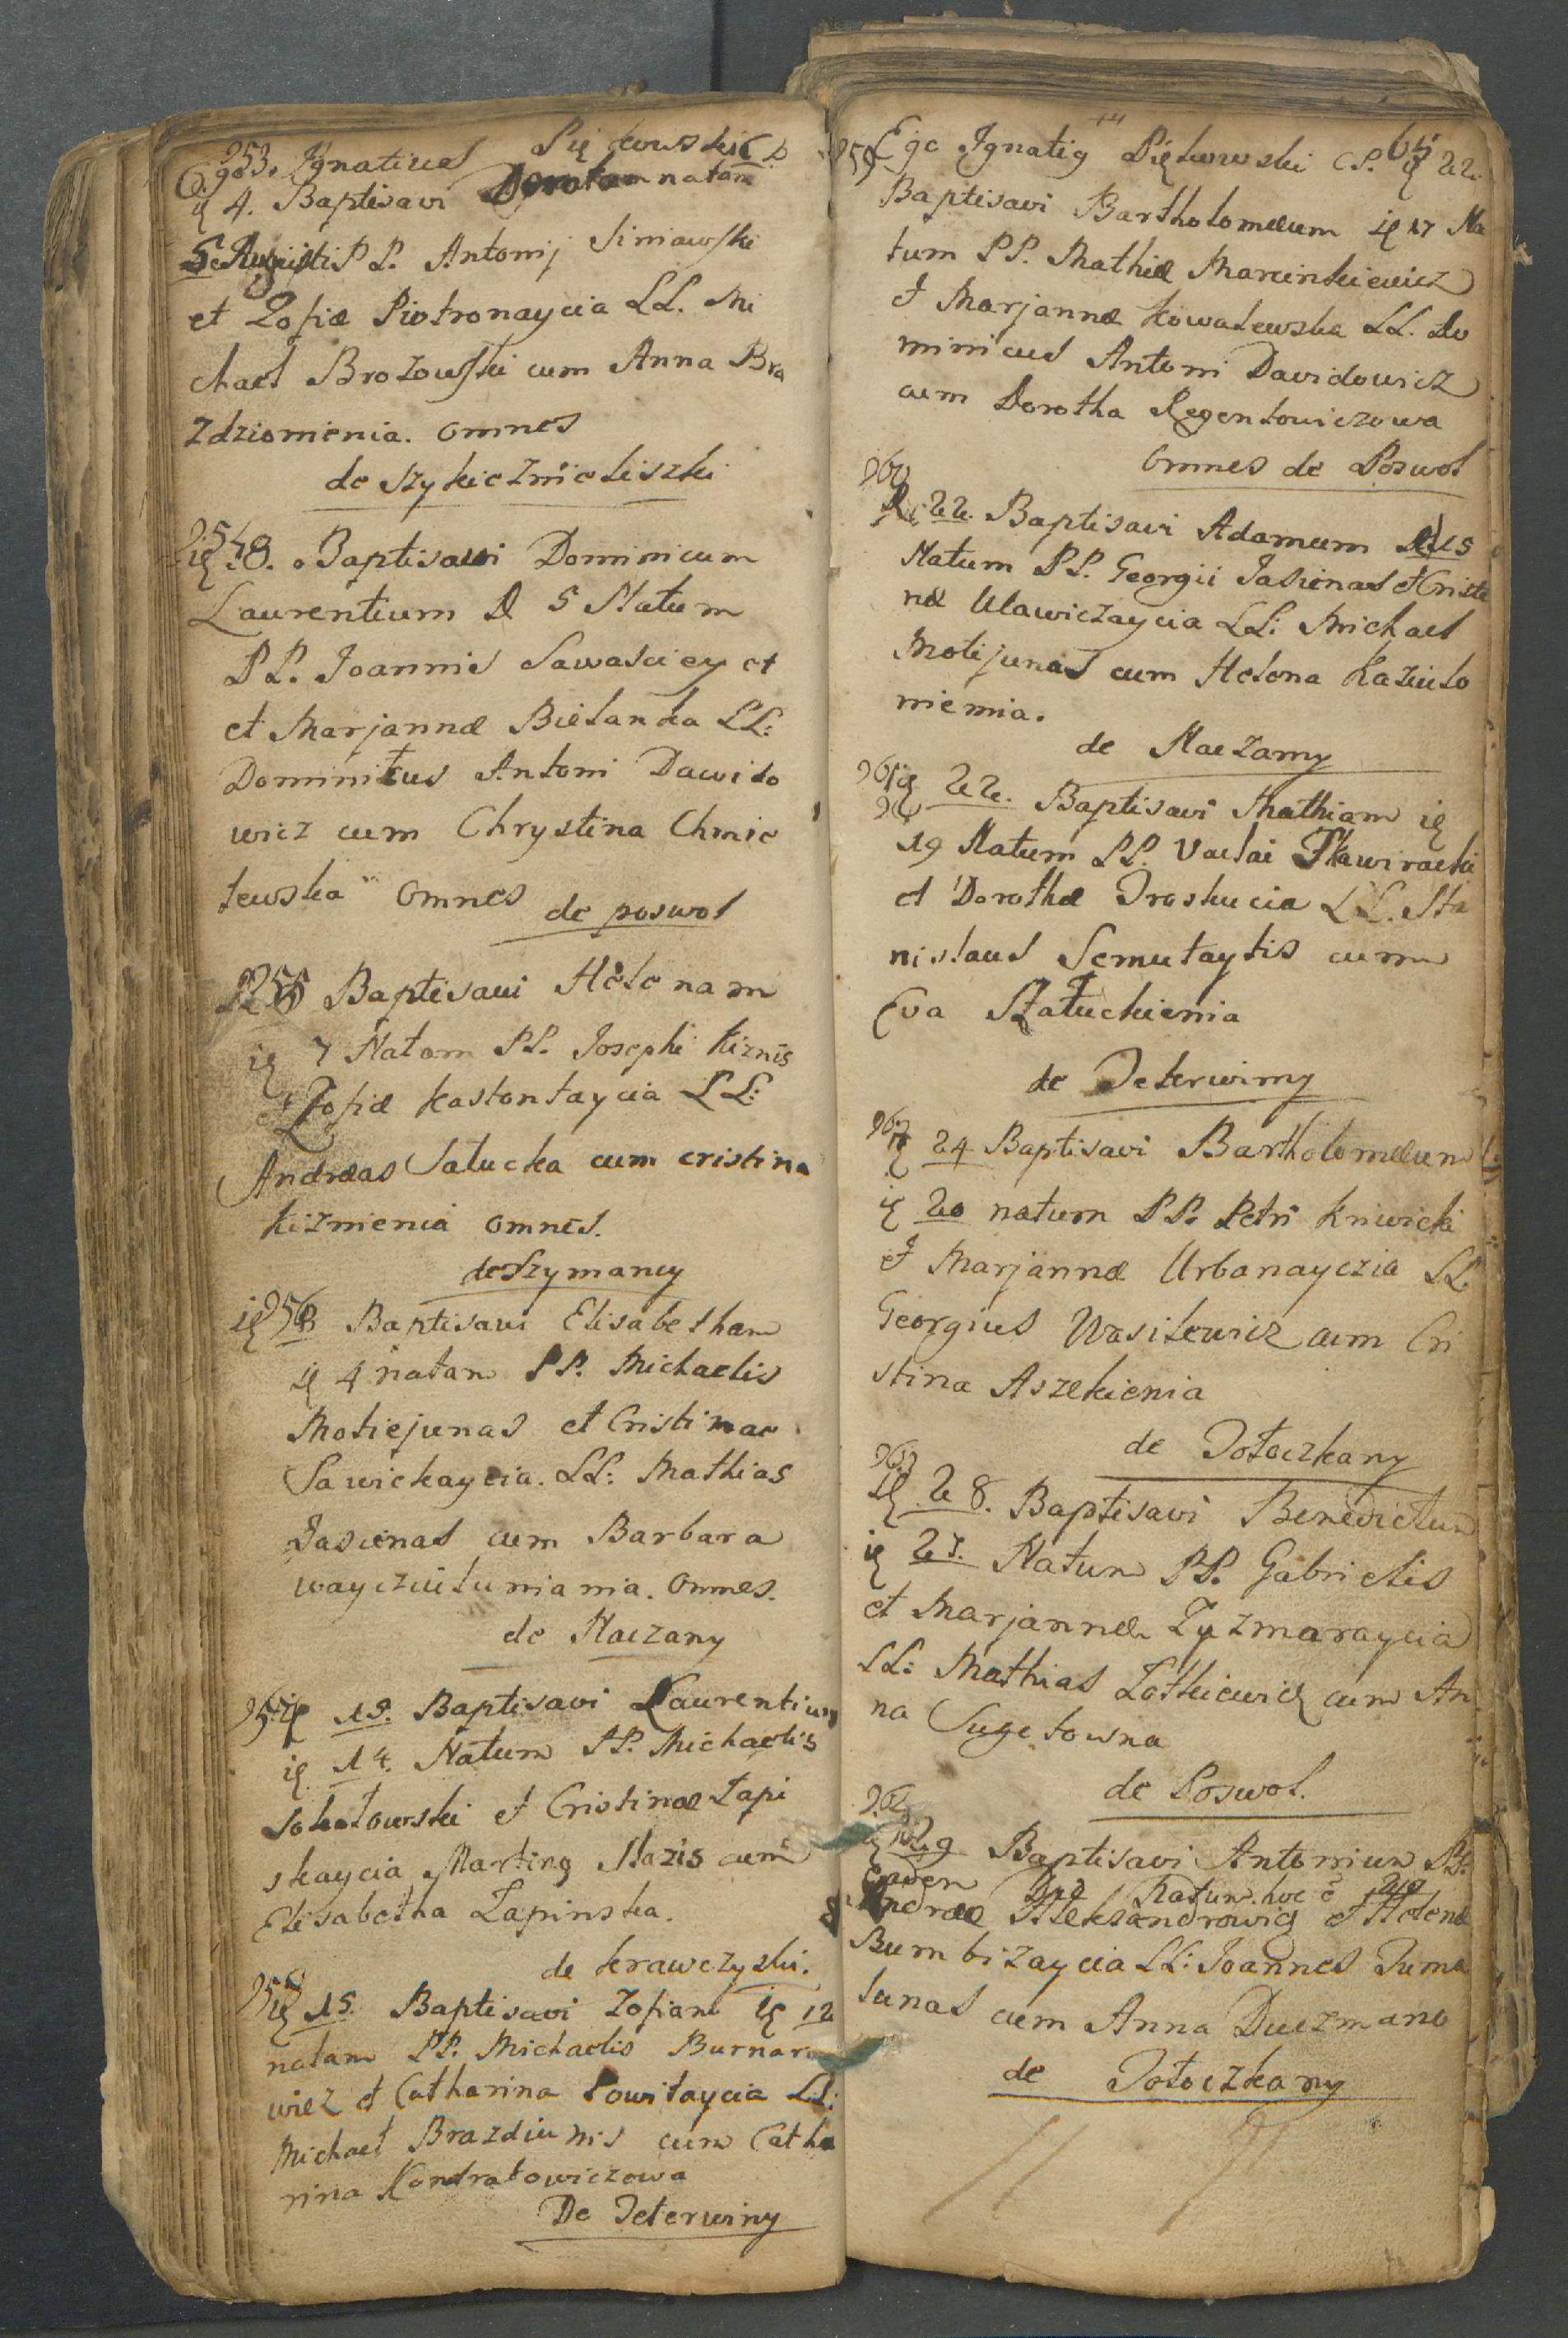 253. Ignatius Piętkowski CP
4. Baptisavi Dorotam natam
5 Augusti PP. Antonij Siniawski
et Zofiæ Piotronaycia LL. Mi
chael Brozowski cum Anna Bra
zdzionienia. omnes
de Szykieznieliszki
254 8. Baptisavi Dominicum
Laurentium D 5 Natum
PP. Joannis Sawasciey et
et Marjannæ Bielanka LL:
Dominicus Antoni Dawido
wicz cum Chrystina Chmie
lewska omnes
de poswol
255 Baptisavi Helenam
7 Natam PP. Josephi Kiznis
et Zofiæ Kaslontaycia LL:
Andræas Satucka cum cristina
Kiznienia omnes.
de Szymancy
256 8 Baptisavi Elisabetham
4 natam PP. Michaelis
Motiejunas et Cristinae
Sawickaycia. LL: Mathias
Jasienas cum Barbara
waycziulunia nia. omnes.
de Naczany
257 15. Baptisavi Laurentium
14. Natum PP. Michaelis
Sokołowski et Cristinæ Łapi
skaycia Marting Nazis cum
Elisabetha Łapinska.
de krawczyski.
258 15. Baptisavi Zofiam 12
natam PP. Michaelis Burnaro
wicz et Catharina Powilaycia LL:
Michael Brazdiunis cum Catha
rina Kondratowiczowa
De Deterwiny
64
259 Ego Ignatig Piętkowski CP. 22.
Baptisavi Bartholomæum 17 Na
tum PP. Mathiæ Marcinkiewicz
et Marjannæ Kowalewska LL. Do
minicus Antoni Davidowicz
cum Dorotha Regentowiczowa
Omnes de Poswol
260
22. Baptisavi Adamum
Natum PP. Georgii Jasienas et Cristi
næ Ulawiczaycia LL: Michael
Motijunas cum Helena Kaziulo
nienia.
de Naczany
261 22. Baptisavi Mathiam
19 Natum PP. Vaclai Skawiracki
et Dorothæ Draskucia LL. Sta
nislaus Semulaytis cum
Eva Szałuckienia
de Deterwiny
262
24 Baptisavi Bartholomæum
20 natum PP. Petri Kniwicki
et Marjannæ Urbanayczia LL.
Georgius Wasilewicz cum Cri
stina Aszekienia
de Dołoczkany
263
28. Baptisavi Benedictum
27. Natum PP. Gabrielis
et Marjannæ Zyzmaraycia
LL: Mathias Zotkiewicz cum An
na Sugetowna
de Poswol.
264
29 Baptisavi Antonium PP.
Eadem Die Natum hoc
Andræ Aleksandrowicz et Helenæ
Bumbizaycia LL: Joannes Duma
lunas cum Anna Duczmano
de Dołoczkany